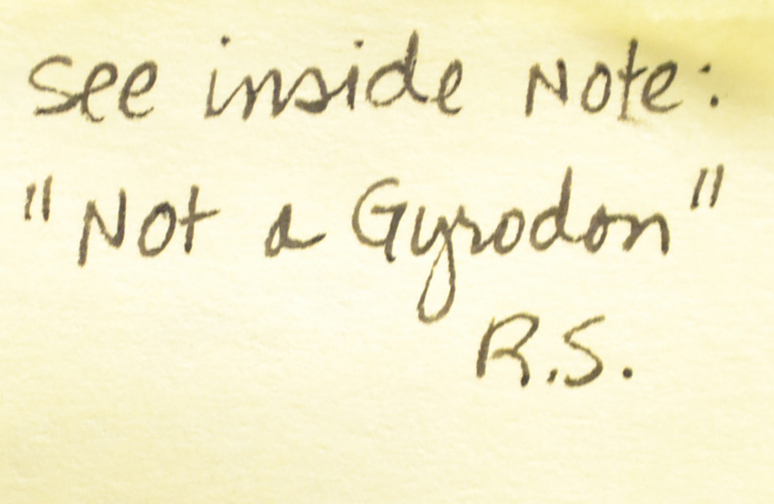 see inside Note:
"Not a Gyrodon"
R.S.